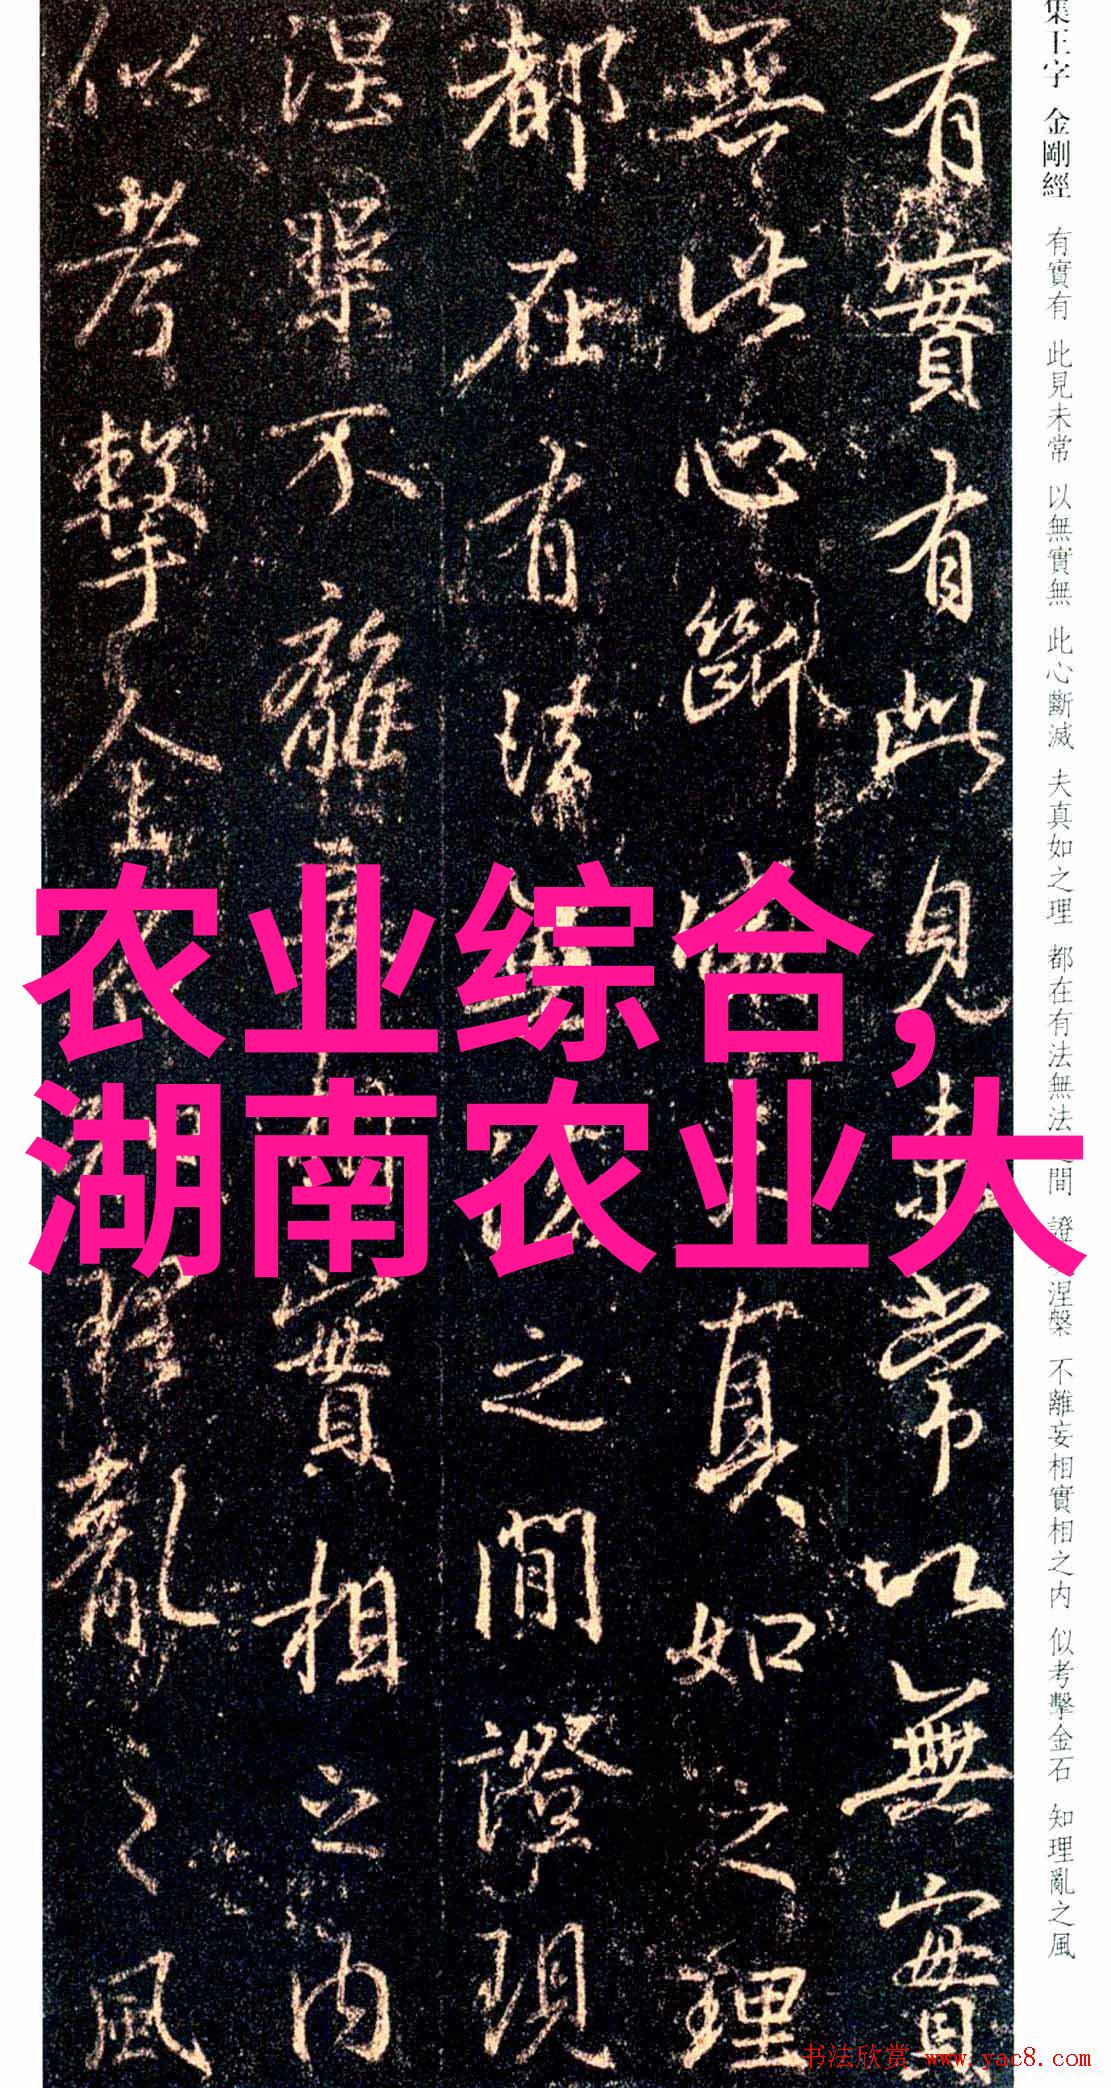 集王字 金剛經 有實有 此見未常 以無實無 此心斷滅 夫真如之理 都在有法無法之間 證涅槃 不離妄相實相之内 似考擊金石 知理亂之風
有實有此見未常以無實
無此心斷滅夫真如之理
都在有法無法之間證現
涅槃不離妄相實相之内
似考擊金石知理亂之風
农业综合，
湖南农业大
书法欣赏 www.yac8.com